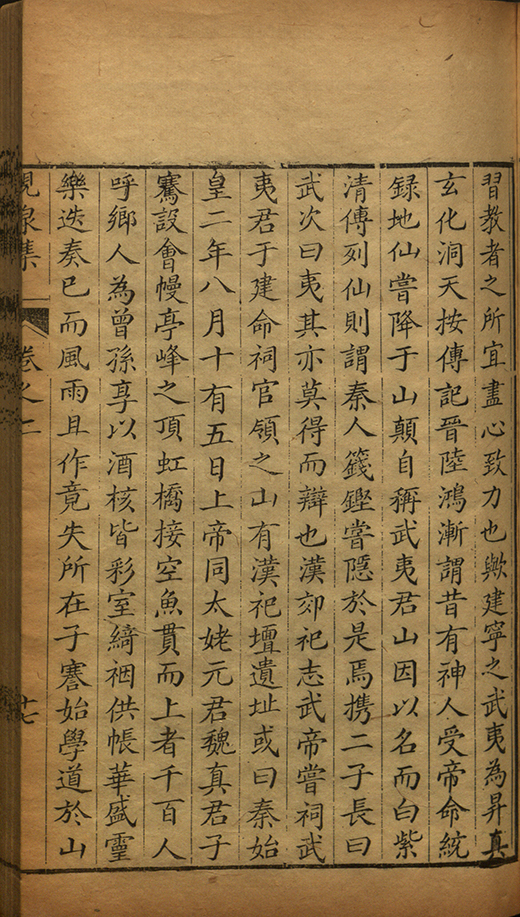 習教者之所宜盡心致力也歟建寧之武夷為昇真
玄化洞天按傳記晉陸鴻漸謂昔有神人受帝命統
録地仙嘗降于山顛自稱武夷君山因以名而白紫
清傳列仙則謂秦人籛鏗嘗隱於是焉携二子長曰
武次曰夷其亦莫得而辯也漢郊祀志武帝嘗祠武
夷君于建命祠官領之山有漢祀壇遺址或曰秦始
皇二年八月十有五日上帝同太姥元君魏真君子
騫設會幔亭峰之頂虹橋接空魚貫而上者千百人
呼鄉人為曾孫享以酒核皆彩室綺裀供帳華盛靈
樂迭奏已而風雨且作竟失所在子騫始學道於山
峴泉集 卷之二 十七